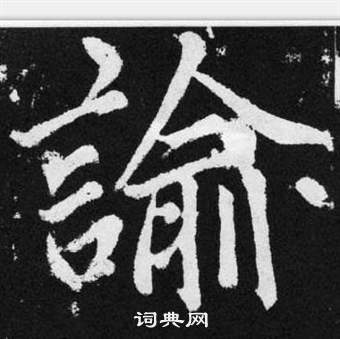 諭
词典网